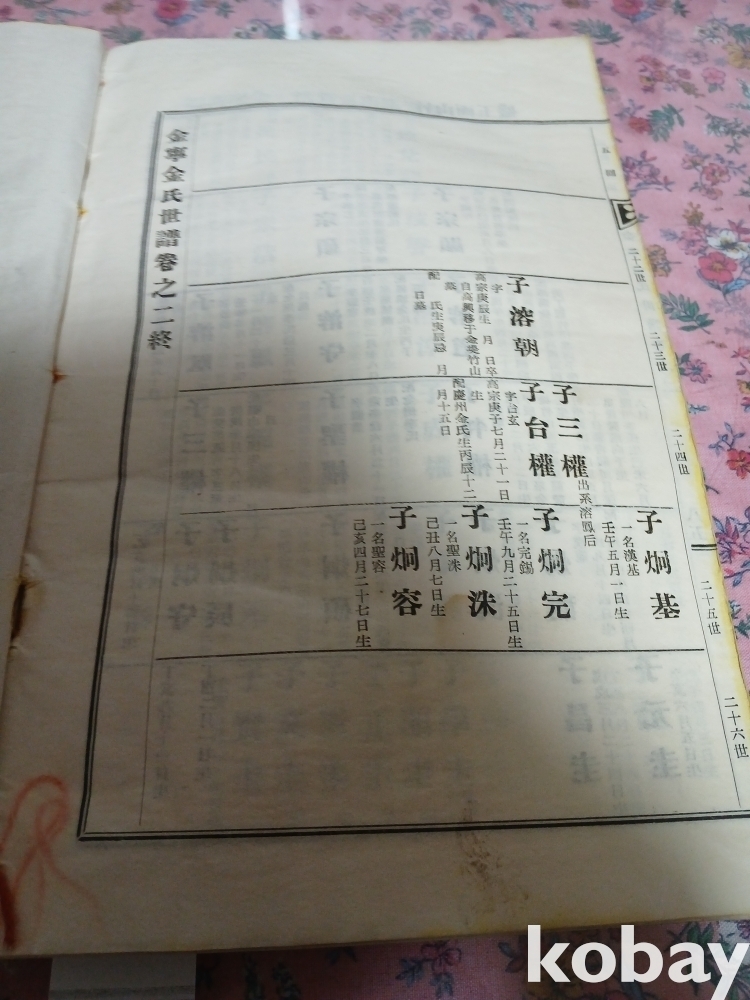 二十二世
二十三世
二十四世
二十五世
二十六世
子溶朝
字
高宗庚辰生 月 日卒
自高興移于金堤竹山
墓
配 氏生庚辰忌 月
日墓
子三權
出系溶鳳后
子台權
字台玄
高宗庚子七月二十一日
生
配慶州金氏生丙辰十二
月十五日
子炯基
一名漢基
壬午五月一日生
子炯完
一名完錫
壬午九月二十五日生
子炯洙
一名聖洙
己丑八月七日生
子炯容
一名聖容
己亥四月二十七日生
金寧金氏世譜卷之二終
kobay